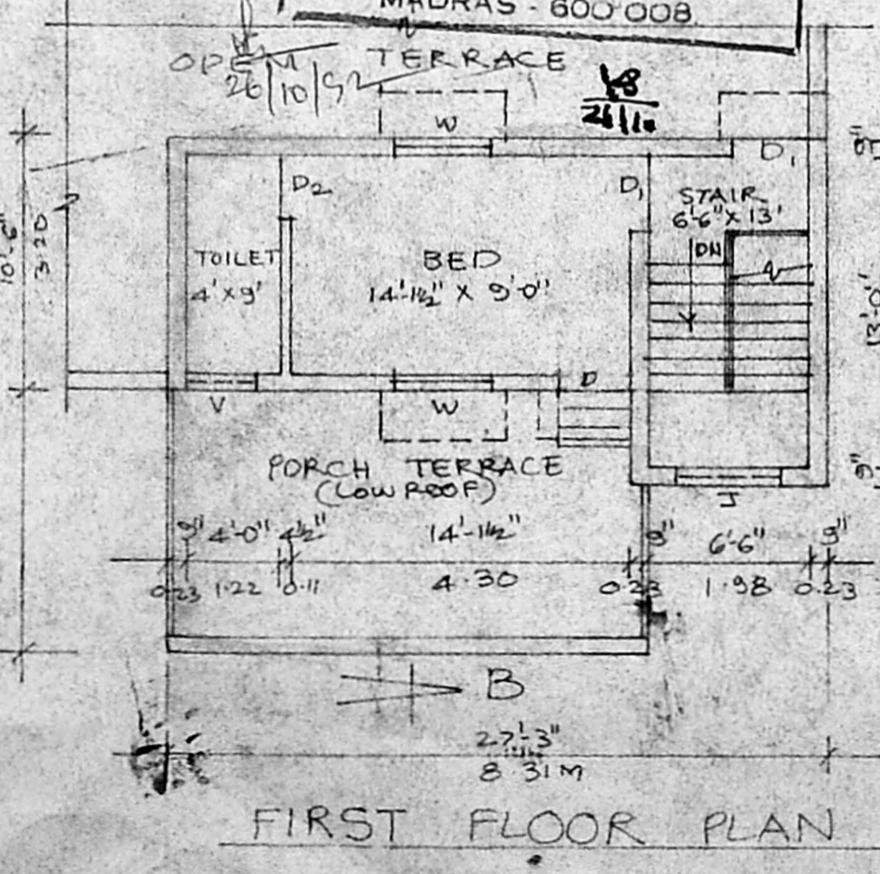 MADRAS - 600 008
OPEN TERRACE
26/10/92
W
D1
D2
D1
STAIR
6'-6" X 13'
DN
TOILET
4' X 9'
BED
14'-1½" X 9'-0"
10'-6"
3.20
9"
13'-0"
9"
V
W
D
J
PORCH TERRACE
(LOW ROOF)
9" 4'-0" 4½" 14'-1½" 9" 6'-6" 9"
0.23 1.22 0.11 4.30 0.23 1.98 0.23
B
27'-3"
8.31 M
FIRST FLOOR PLAN